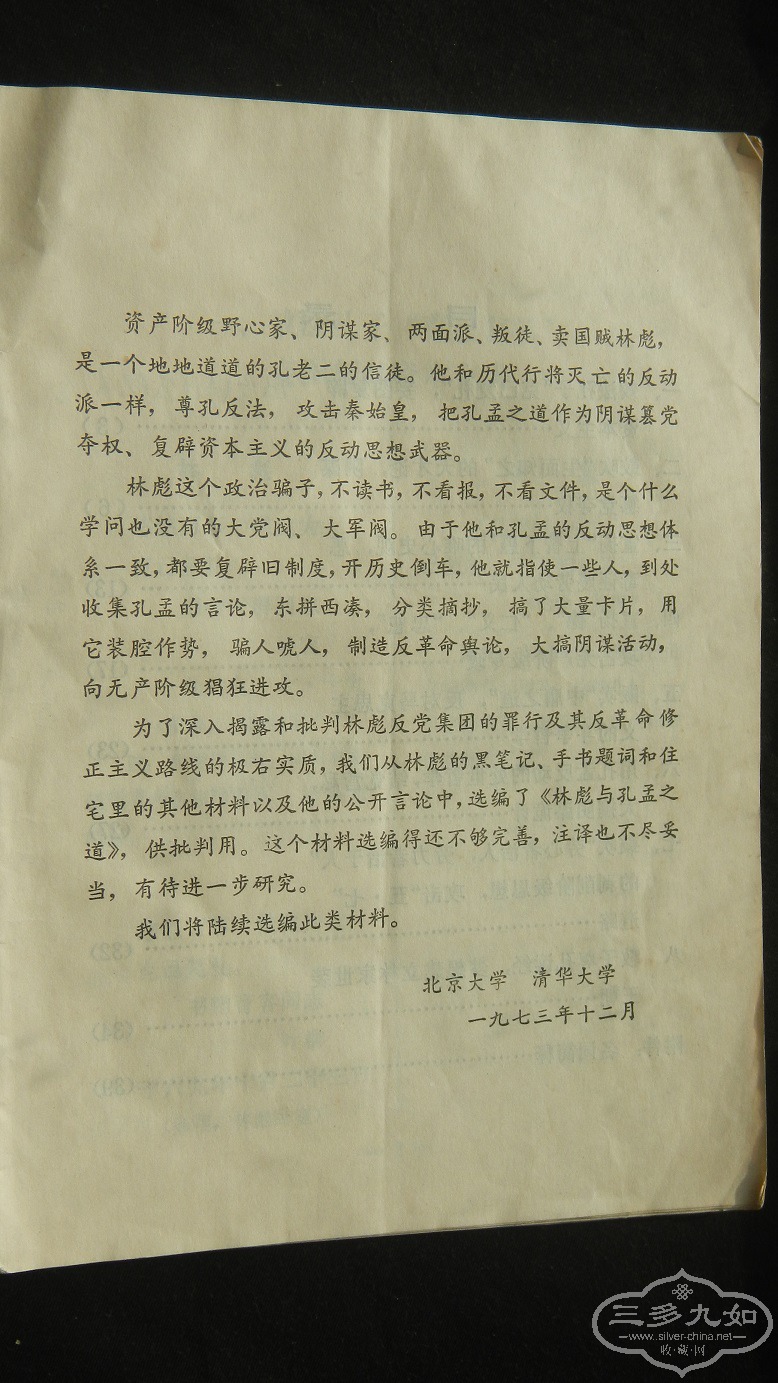 资产阶级野心家、阴谋家、两面派、叛徒、卖国贼林彪，
是一个地地道道的孔老二的信徒。他和历代行将灭亡的反动
派一样，尊孔反法，攻击秦始皇，把孔孟之道作为阴谋篡党
夺权、复辟资本主义的反动思想武器。
林彪这个政治骗子，不读书，不看报，不看文件，是个什么
学问也没有的大党阀、大军阀。由于他和孔孟的反动思想体
系一致，都要复辟旧制度，开历史倒车，他就指使一些人，到处
收集孔孟的言论，东拼西凑，分类摘抄，搞了大量卡片，用
它装腔作势，骗人唬人，制造反革命舆论，大搞阴谋活动，
向无产阶级猖狂进攻。
为了深入揭露和批判林彪反党集团的罪行及其反革命修
正主义路线的极右实质，我们从林彪的黑笔记、手书题词和住
宅里的其他材料以及他的公开言论中，选编了《林彪与孔孟之
道》，供批判用。这个材料选编得还不够完善，注译也不尽妥
当，有待进一步研究。
我们将陆续选编此类材料。
北京大学 清华大学
一九七三年十二月
三多九如
www.silver-china.net
收·藏·网